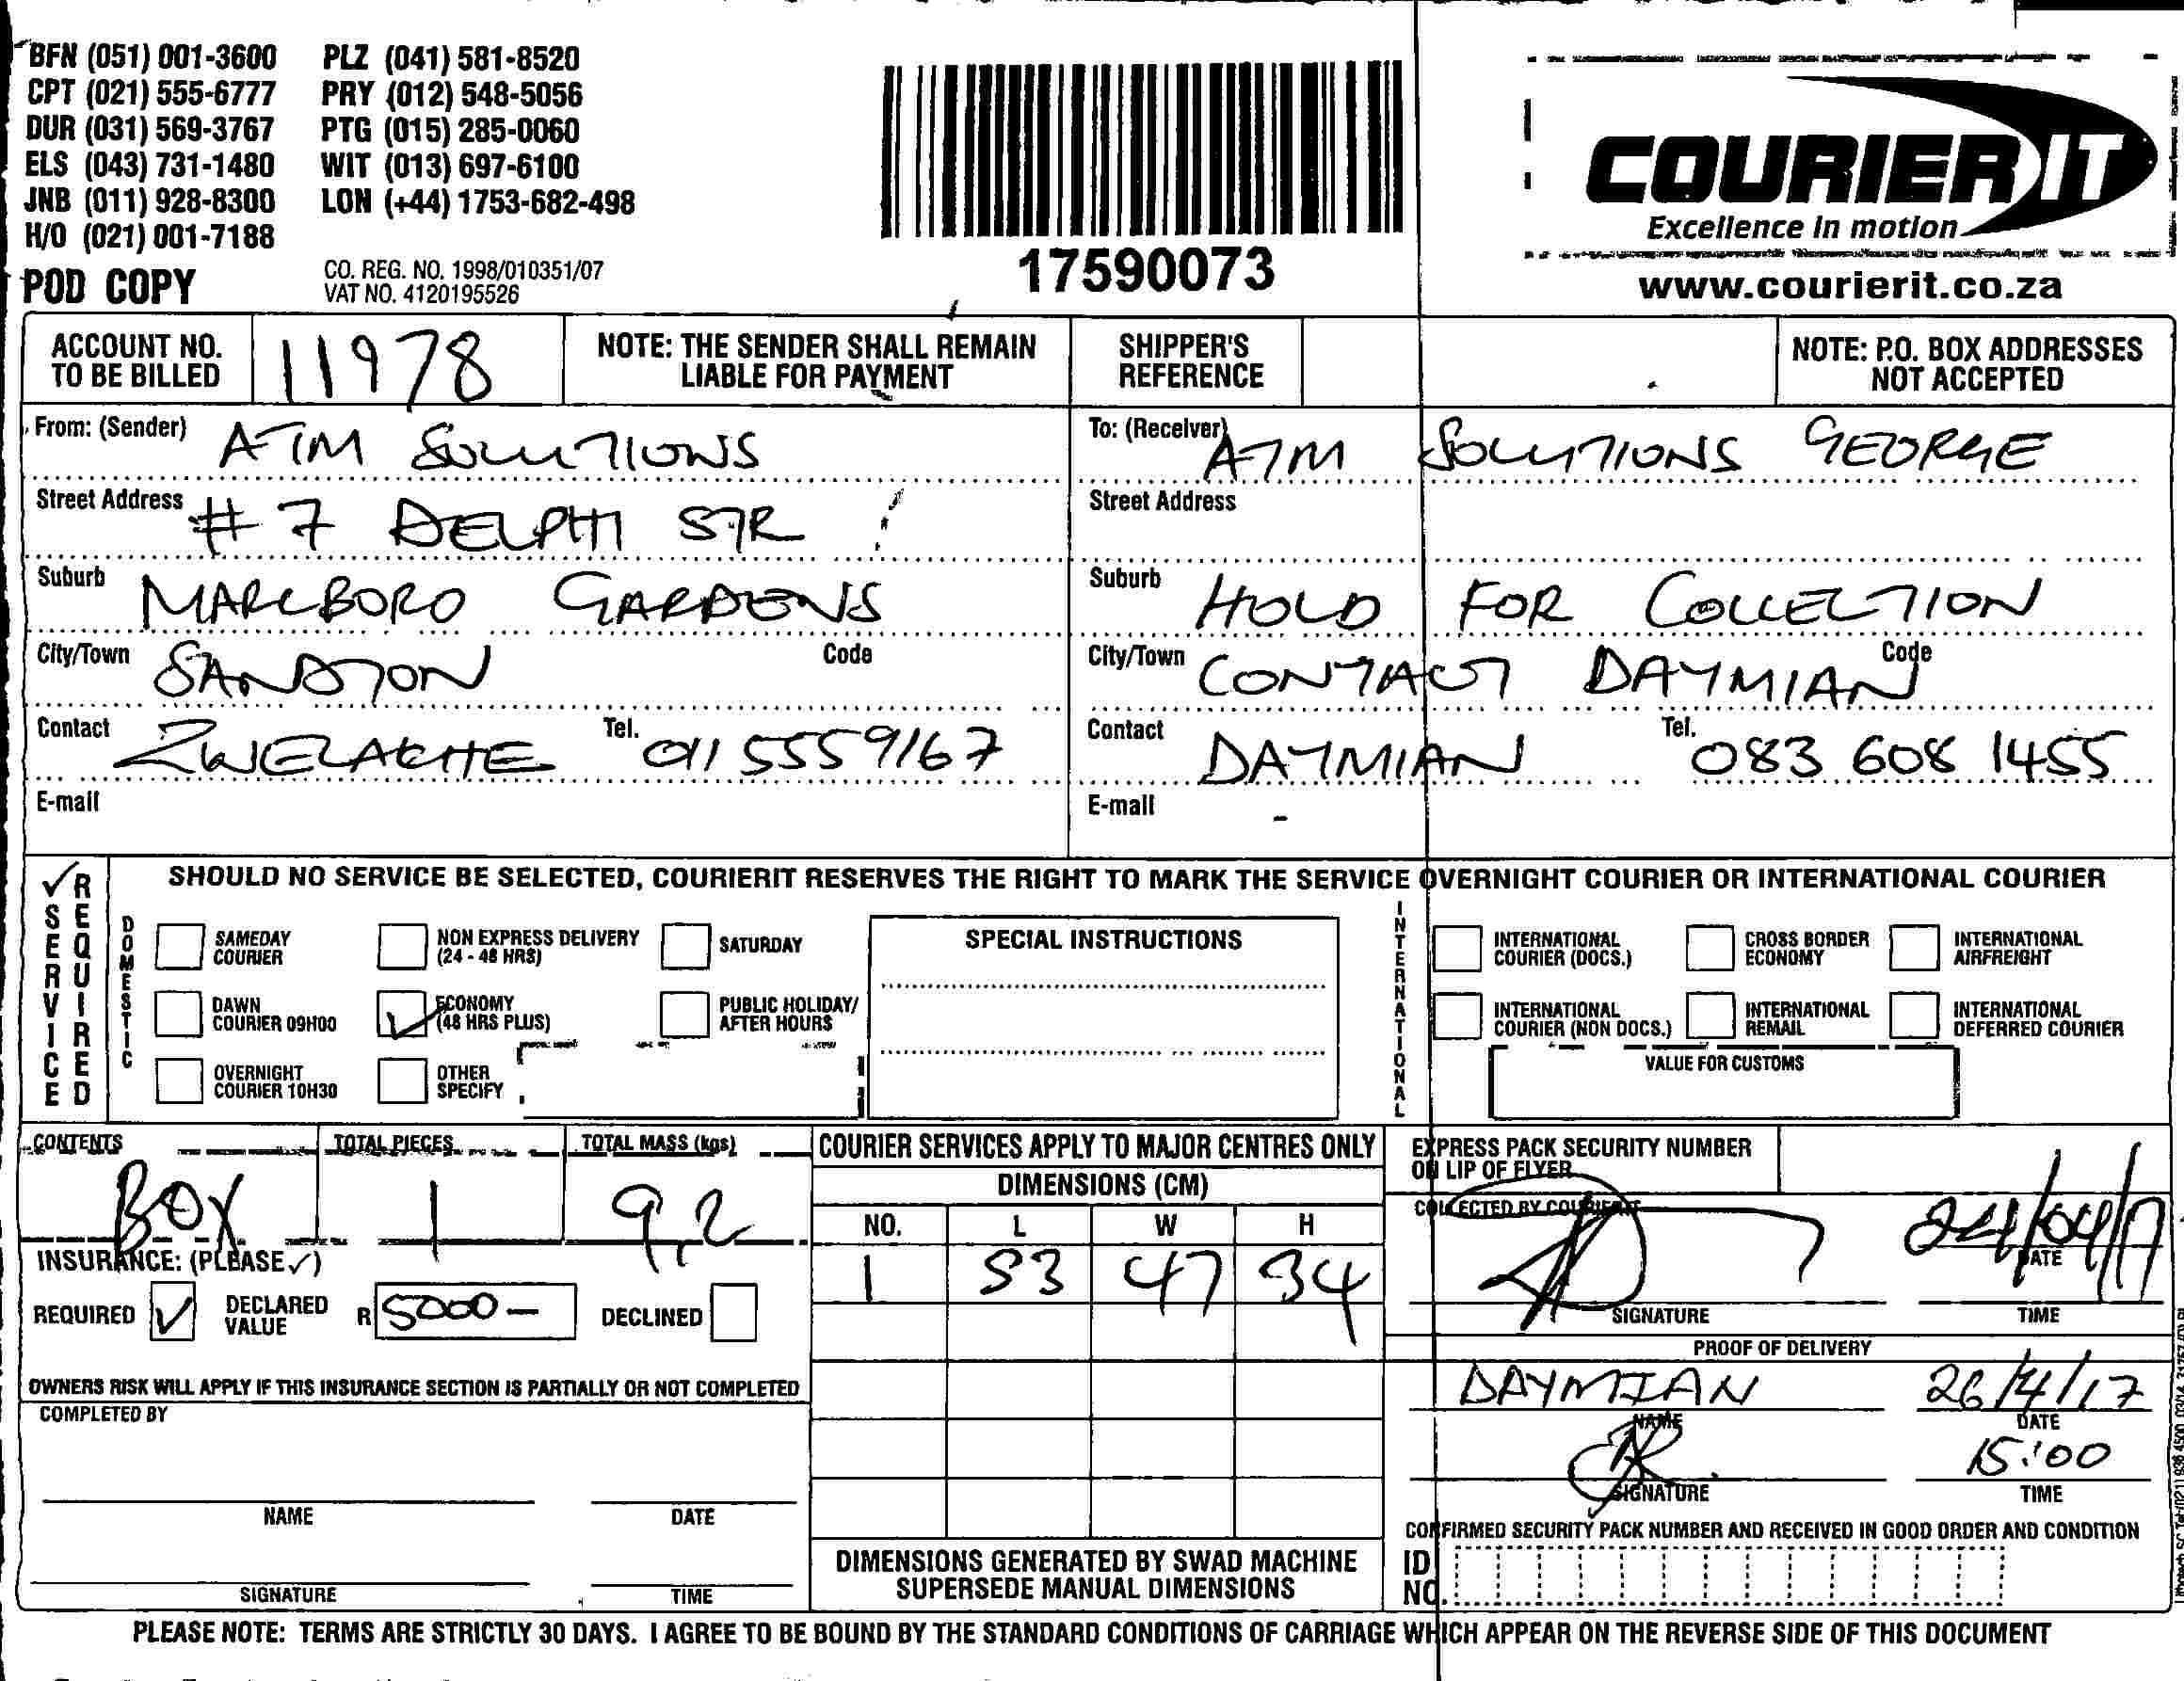 BFN (051) 001-3600 PLZ (041) 581-8520
CPT (021) 555-6777 PRY (012) 548-5056
DUR (031) 569-3767 PTG (015) 285-0060
ELS (043) 731-1480 WIT (013) 697-6100
JNB (011) 928-8300 LON (+44) 1753-682-498
H/O (021) 001-7188
POD COPY
CO. REG. NO. 1998/010351/07
VAT NO. 4120195526
17590073
COURIER IT
Excellence in motion
www.courierit.co.za
ACCOUNT NO. TO BE BILLED 11978
NOTE: THE SENDER SHALL REMAIN LIABLE FOR PAYMENT
SHIPPER'S REFERENCE
NOTE: P.O. BOX ADDRESSES NOT ACCEPTED
From: (Sender) ATM SOLUTIONS
Street Address # 7 DELPHI STR
Suburb MARLBORO GARDENS
City/Town SANDTON Code
Contact ZWELAKHE Tel. 011 5559167
E-mail
To: (Receiver) ATM SOLUTIONS GEORGE
Street Address
Suburb HOLD FOR COLLECTION
City/Town CONTACT DAYMIAN Code
Contact DAYMIAN Tel. 083 608 1455
E-mail -
✓ SERVICE REQUIRED
SHOULD NO SERVICE BE SELECTED, COURIERIT RESERVES THE RIGHT TO MARK THE SERVICE OVERNIGHT COURIER OR INTERNATIONAL COURIER
DOMESTIC
SAMEDAY COURIER
NON EXPRESS DELIVERY (24 - 48 HRS)
SATURDAY
DAWN COURIER 09H00
✓ ECONOMY (48 HRS PLUS)
PUBLIC HOLIDAY/ AFTER HOURS
OVERNIGHT COURIER 10H30
OTHER SPECIFY
SPECIAL INSTRUCTIONS
INTERNATIONAL
INTERNATIONAL COURIER (DOCS.)
CROSS BORDER ECONOMY
INTERNATIONAL AIRFREIGHT
INTERNATIONAL COURIER (NON DOCS.)
INTERNATIONAL REMAIL
INTERNATIONAL DEFERRED COURIER
VALUE FOR CUSTOMS
CONTENTS BOX
TOTAL PIECES 1
TOTAL MASS (kgs) 9,2
INSURANCE: (PLEASE ✓)
REQUIRED ✓ DECLARED VALUE R 5000 - DECLINED
OWNERS RISK WILL APPLY IF THIS INSURANCE SECTION IS PARTIALLY OR NOT COMPLETED
COMPLETED BY
NAME DATE
SIGNATURE TIME
COURIER SERVICES APPLY TO MAJOR CENTRES ONLY
DIMENSIONS (CM)
NO. L W H
1 53 47 34
DIMENSIONS GENERATED BY SWAD MACHINE
SUPERSEDE MANUAL DIMENSIONS
EXPRESS PACK SECURITY NUMBER
ON LIP OF FLYER
COLLECTED BY COURIERIT
24/04/17
DATE
SIGNATURE TIME
PROOF OF DELIVERY
DAYMIAN 26/4/17
NAME DATE
15:00
SIGNATURE TIME
CONFIRMED SECURITY PACK NUMBER AND RECEIVED IN GOOD ORDER AND CONDITION
ID NO.
PLEASE NOTE: TERMS ARE STRICTLY 30 DAYS. I AGREE TO BE BOUND BY THE STANDARD CONDITIONS OF CARRIAGE WHICH APPEAR ON THE REVERSE SIDE OF THIS DOCUMENT